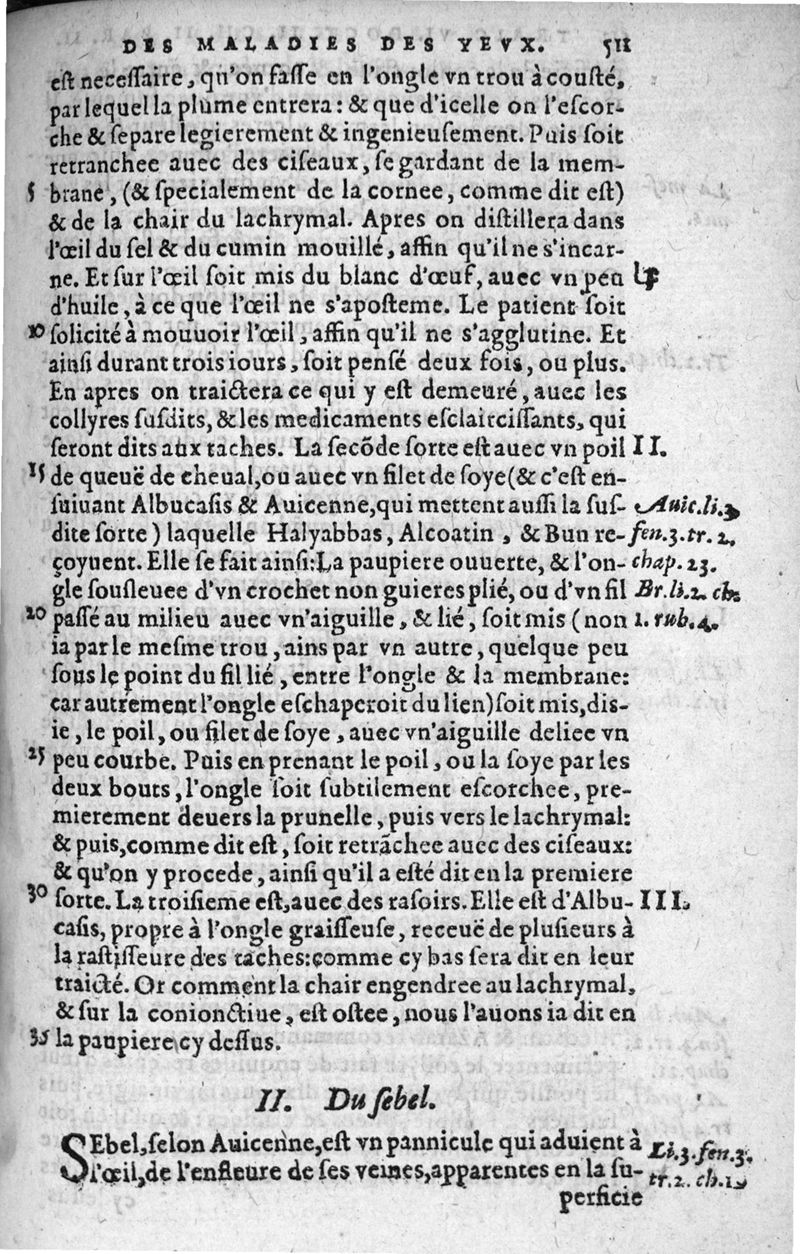 DES MALADIES DES YEVX. 511
est necessaire, qu'on fasse en l'ongle vn trou à cousté,
par lequel la plume entrera: & que d'icelle on l'escor-
che & separe legierement & ingenieusement. Puis soit
retranchee auec des ciseaux, se gardant de la mem-
5 brane, (& specialement de la cornee, comme dit est)
& de la chair du lachrymal. Apres on distillera dans
l'œil du sel & du cumin mouillé, affin qu'il ne s'incar-
ne. Et sur l'œil soit mis du blanc d'œuf, auec vn peu
d'huile, à ce que l'œil ne s'aposteme. Le patient soit
10 solicité à mouuoir l'œil, affin qu'il ne s'agglutine. Et
ainsi durant trois iours, soit pensé deux fois, ou plus.
En apres on traictera ce qui y est demeuré, auec les
collyres susdits, & les medicaments esclaircissants, qui
seront dits aux taches. La secõde sorte est auec vn poil II.
15 de queuë de cheual, ou auec vn filet de soye (& c'est en-
suiuant Albucasis & Auicenne, qui mettent aussi la sus- Auic. li. 3.
dite sorte) laquelle Halyabbas, Alcoatin, & Bun re- fen. 3. tr. 2.
çoyuent. Elle se fait ainsi: La paupiere ouuerte, & l'on- chap. 23.
gle sousleuee d'vn crochet non guieres plié, ou d'vn fil Br. li. 2. ch.
20 passé au milieu auec vn'aiguille, & lié, soit mis (non 1. rub. 4.
ia par le mesme trou, ains par vn autre, quelque peu
sous le point du fil lié, entre l'ongle & la membrane:
car autrement l'ongle eschaperoit du lien) soit mis, dis-
ie, le poil, ou filet de soye, auec vn'aiguille deliee vn
25 peu courbe. Puis en prenant le poil, ou la soye par les
deux bouts, l'ongle soit subtilement escorchee, pre-
mierement deuers la prunelle, puis vers le lachrymal:
& puis, comme dit est, soit retrãchee auec des ciseaux:
& qu'on y procede, ainsi qu'il a esté dit en la premiere
30 sorte. La troisieme est, auec des rasoirs. Elle est d'Albu- III.
casis, propre à l'ongle graisseuse, receuë de plusieurs à
la rastisseure des taches: comme cy bas sera dit en leur
traicté. Or comment la chair engendree au lachrymal,
& sur la conionctiue, est ostee, nous l'auons ia dit en
35 la paupiere cy dessus.
II. Du sebel.
SEbel, selon Auicenne, est vn pannicule qui aduient à Li. 3. fen. 3.
l'œil, de l'enfleure de ses veines, apparentes en la su- tr. 2. ch. 1.
perficie